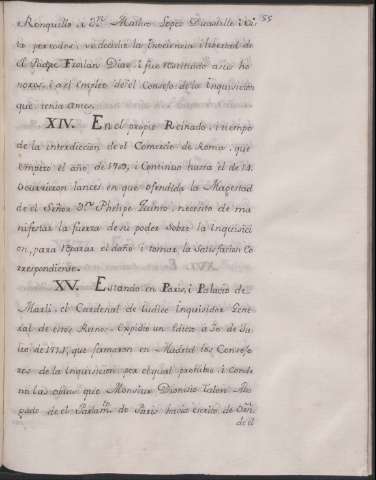 55
Ronquillo a Dn. Matheo Lopez Dicastillo Vista
pasandose, se declaró la Inociencia i libertad de
el Padre Froilan Diaz, i fue restituido a sus ho
nores, i a el empleo de el Consejo de la Inquisicion
que tenia antes.
XIV. En el propio Reinado, i tiempo
de la interdiccion de el Comercio de Roma, que
empezó el año de 1709, i continuó hasta el de 14.
Ocurrieron lances en que ofendida la Magestad
de el Señor Dn. Phelipe Quinto, necesitó de ma
nifestar la fuerza de su poder sobre la Inquisici
on, para reparar el daño i tomar la Satisfacion Co
rrespondiente.
XV. Estando en Paris, i Palacio de
Marli, el Cardenal de Iudice Inquisidor Gene
ral de estos Reinos. Expidio un Edicto a 30 de Ju
lio de 1714, que firmaron en Madrid los Conseje
ros de la Inquisicion por el qual prohibio i Conde
nó las obras que Monsiur Dionisio Talon Abo
gado de el Parlamto. de Paris havia escrito de Orn.
de el